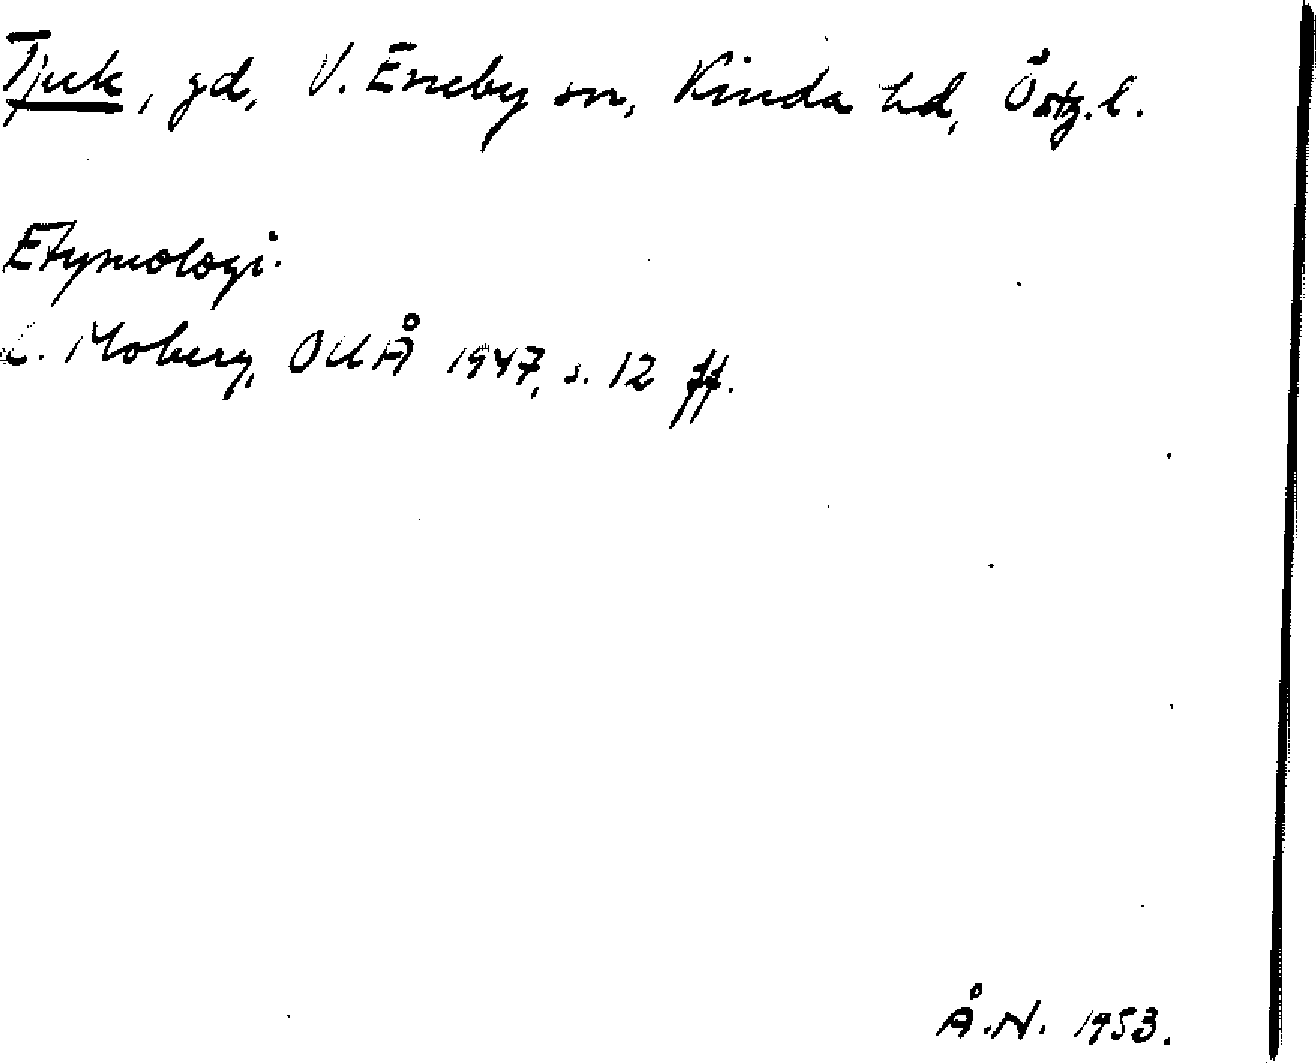 Tjuk, gd, V. Eneby sn, Kinda hd, Östg. l.
Etymologi.
L. Moberg, OUÅ 1947, s. 12 ff.
Å.N. 1953.